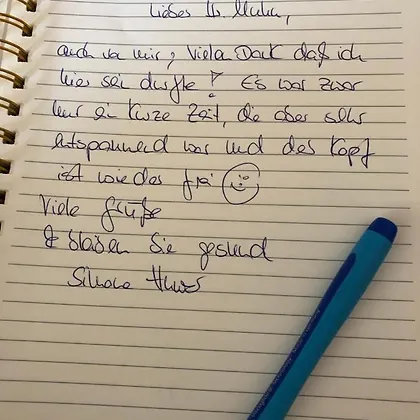 Liebes
auch von mir, vielen Dank daß ich
hier sein durfte! Es war zwar
nur eine kurze Zeit, die aber sehr
entspannend war und der Kopf
ist wieder frei
Viele Grüße
& bleiben Sie gesund
Simone